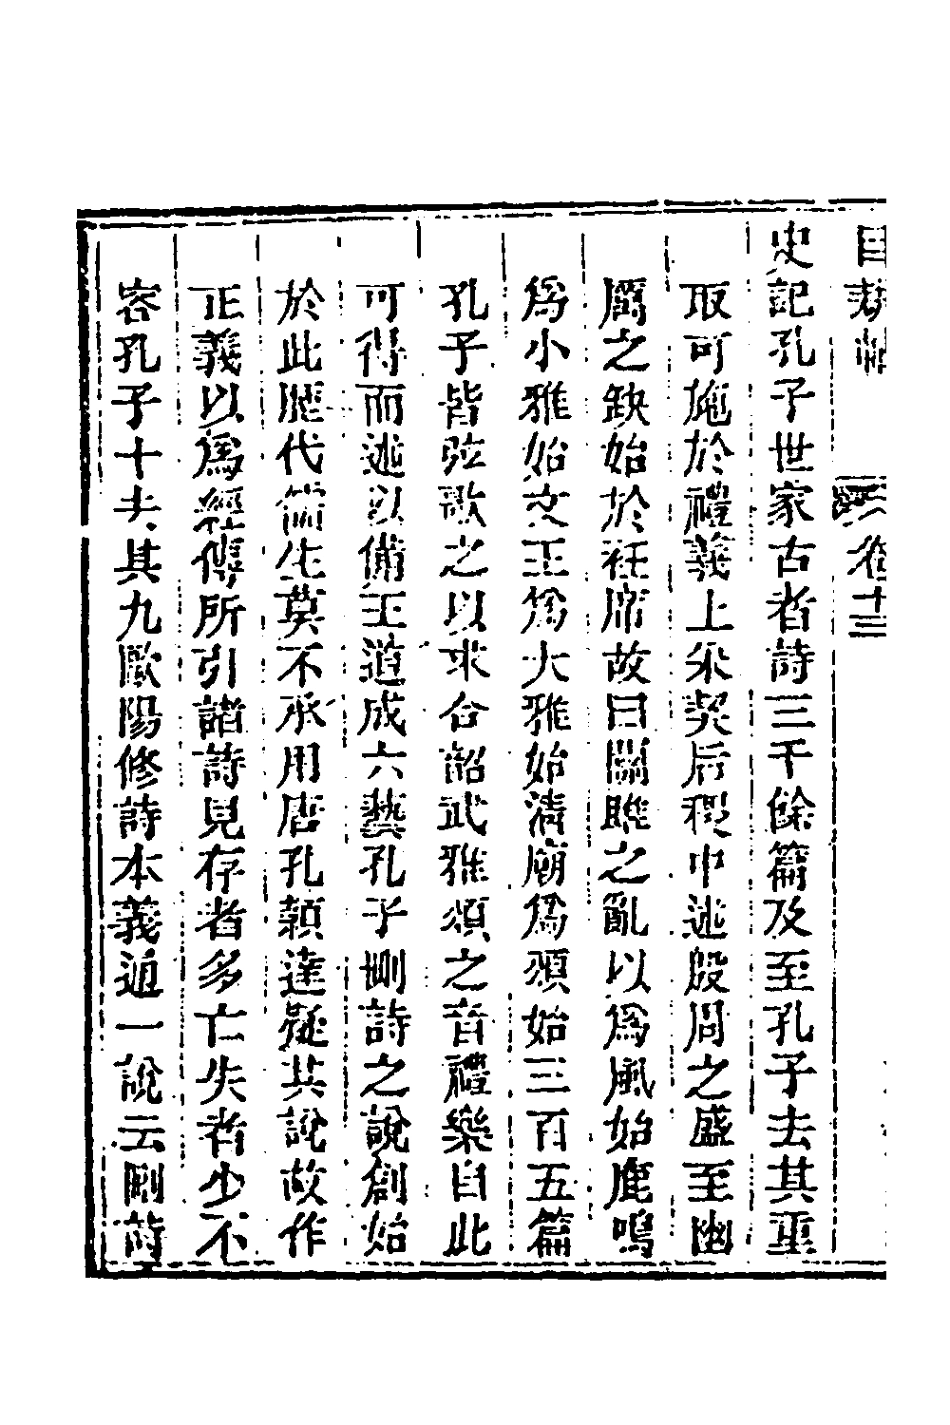 卷十三
史記孔子世家古者詩三千餘篇及至孔子去其重
取可施於禮義上采契后稷中述殷周之盛至幽
厲之缺始於衽席故曰關雎之亂以爲風始鹿鳴
爲小雅始文王爲大雅始清廟爲頌始三百五篇
孔子皆弦歌之以求合韶武雅頌之音禮樂自此
可得而述以備王道成六藝孔子刪詩之說創始
於此歷代儒生莫不承用唐孔穎達疑其說故作
正義以爲經傳所引諸詩見存者多亡失者少不
容孔子十去其九歐陽修詩本義通一說云刪詩